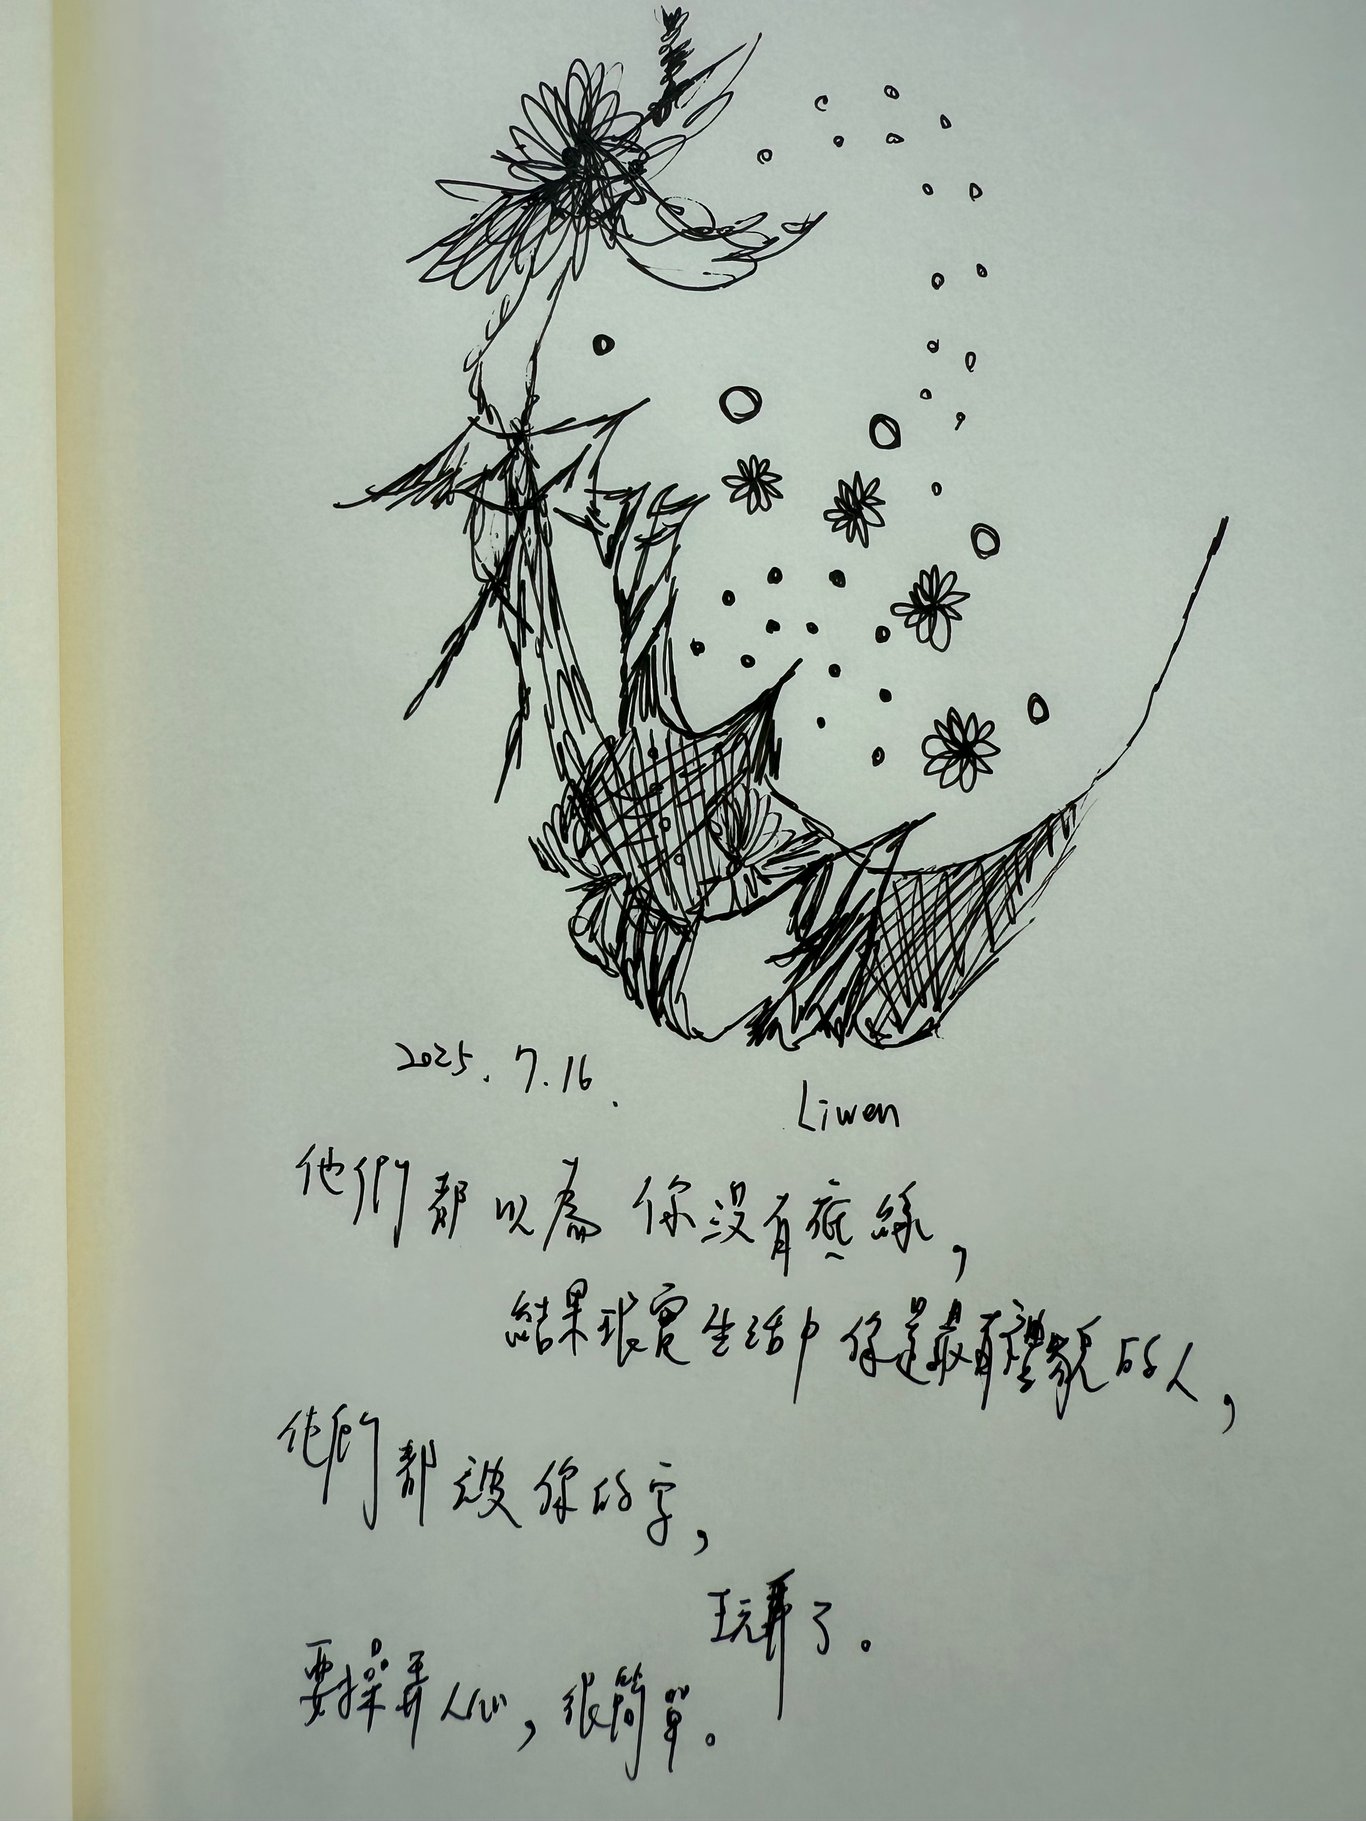 2025.7.16.
Liwen
他們都以為你沒有底線,
結果現實生活中你是最有禮貌的人,
他們都被你的字,
玩弄了。
要操弄人心,很簡單。